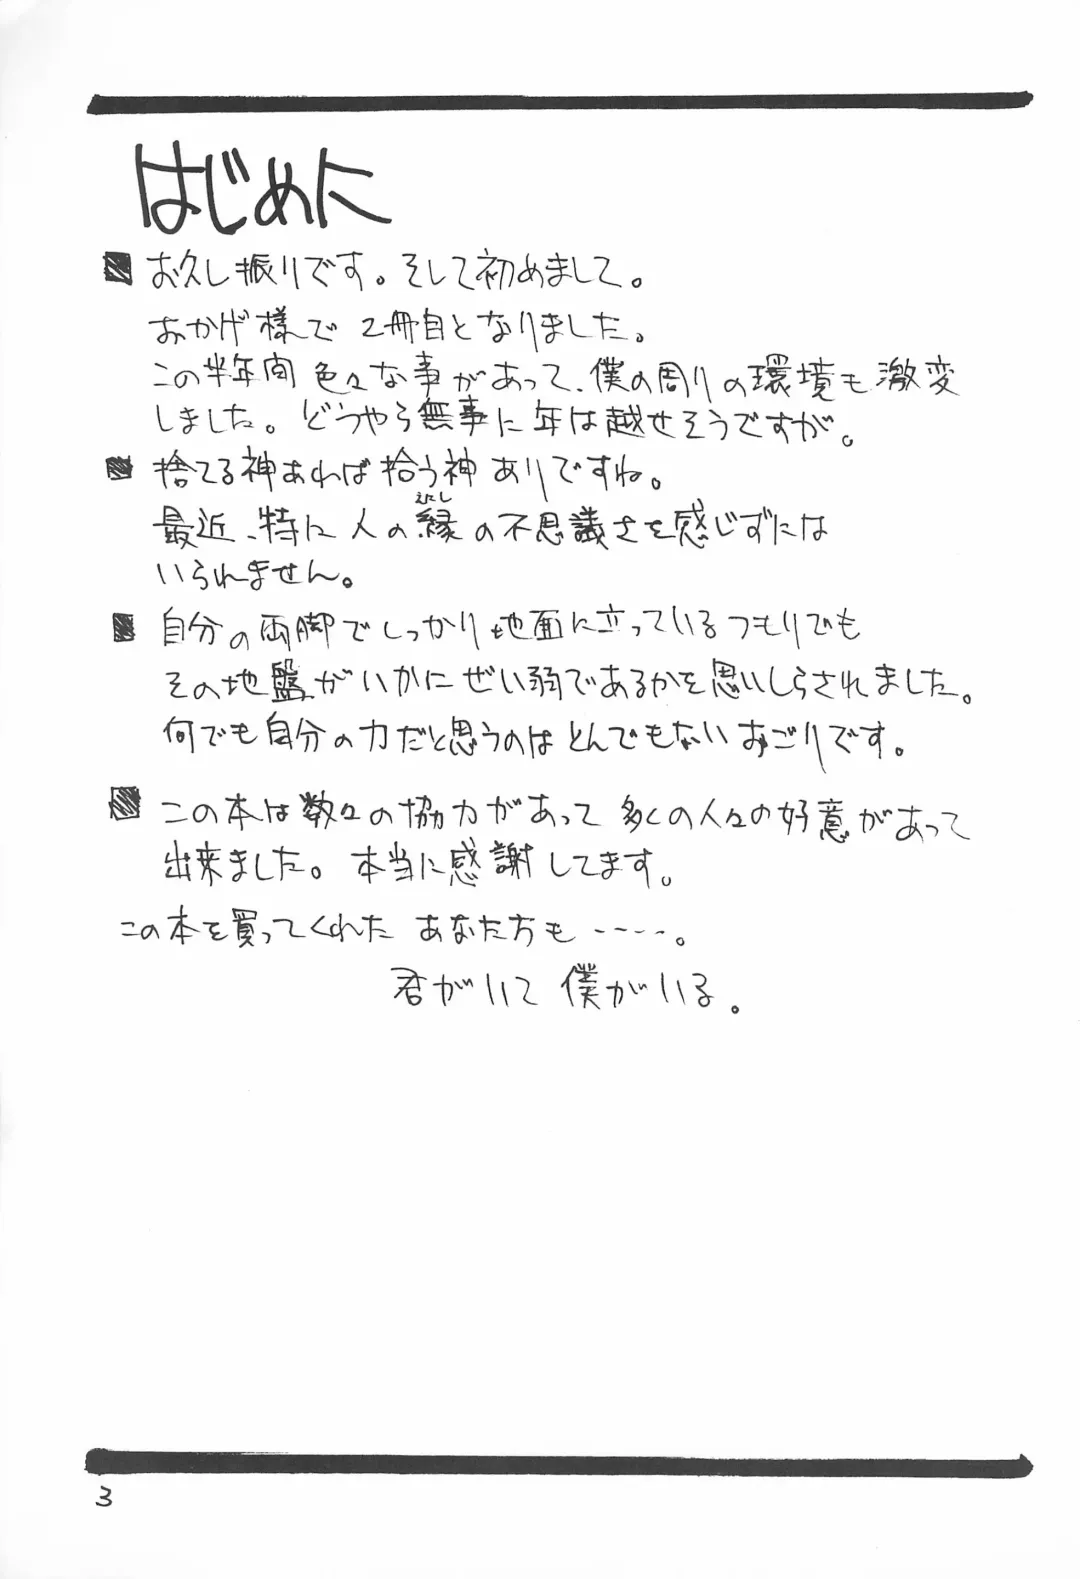 はじめに
お久し振りです。そして初めまして。
おかげ様で2冊目となりました。
この半年間色々な事があって、僕の周りの環境も激変
しました。どうやら無事に年は越せそうですが。
捨てる神あれば拾う神ありですね。
最近、特に人の縁の不思議さを感じずには
えにし
いられません。
自分の両脚でしっかり地面に立っているつもりでも
その地盤がいかにぜい弱であるかを思いしらされました。
何でも自分の力だと思うのはとんでもないおごりです。
この本は数々の協力があって多くの人々の好意があって
出来ました。本当に感謝してます。
この本を買ってくれたあなた方も----。
君がいて僕がいる。
3